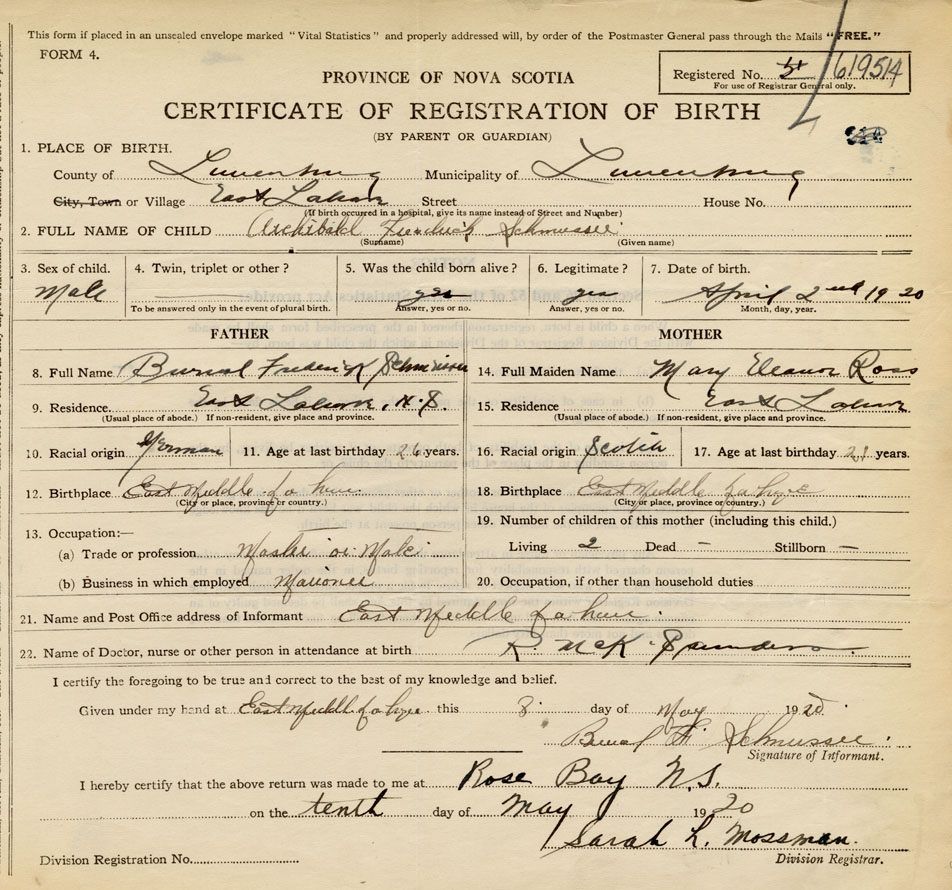 This form if placed in an unsealed envelope marked "Vital Statistics" and properly addressed will, by order of the Postmaster General pass through the Mails "FREE."
FORM 4.
PROVINCE OF NOVA SCOTIA
Registered No. 619514
For use of Registrar General only.
CERTIFICATE OF REGISTRATION OF BIRTH
(BY PARENT OR GUARDIAN)
1. PLACE OF BIRTH.
County of Lunenburg Municipality of Lunenburg
City, Town or Village East LaHave Street House No.
(If birth occurred in a hospital, give its name instead of Street and Number)
2. FULL NAME OF CHILD Archibald Fredrick Schmussee
(Surname) (Given name)
3. Sex of child. 4. Twin, triplet or other? 5. Was the child born alive? 6. Legitimate? 7. Date of birth.
Male yes yes April 2nd 1920
To be answered only in the event of plural birth. Answer, yes or no. Answer, yes or no. Month, day, year.
FATHER MOTHER
8. Full Name Frederick 14. Full Maiden Name Mary Eleanor Ross
9. Residence. East LaHave, N.S. 15. Residence East LaHave
(Usual place of abode.) If non-resident, give place and province. (Usual place of abode.) If non-resident, give place and province.
10. Racial origin German 11. Age at last birthday 26 years. 16. Racial origin Scotia 17. Age at last birthday years.
12. Birthplace East Middle 18. Birthplace East Middle
(City or place, province or country.) (City or place, province or country.)
13. Occupation:— 19. Number of children of this mother (including this child.)
(a) Trade or profession or Mate Living 2 Dead – Stillborn —
(b) Business in which employed 20. Occupation, if other than household duties
21. Name and Post Office address of Informant East Middle
22. Name of Doctor, nurse or other person in attendance at birth R. McK. Saunders
I certify the foregoing to be true and correct to the best of my knowledge and belief.
Given under my hand at East Middle this 8 day of May 1920
F. Schmussee
Signature of Informant.
I hereby certify that the above return was made to me at Rose Bay N.S.
on the tenth day of May 1920
Sarah L. Mossman.
Division Registration No. Division Registrar.